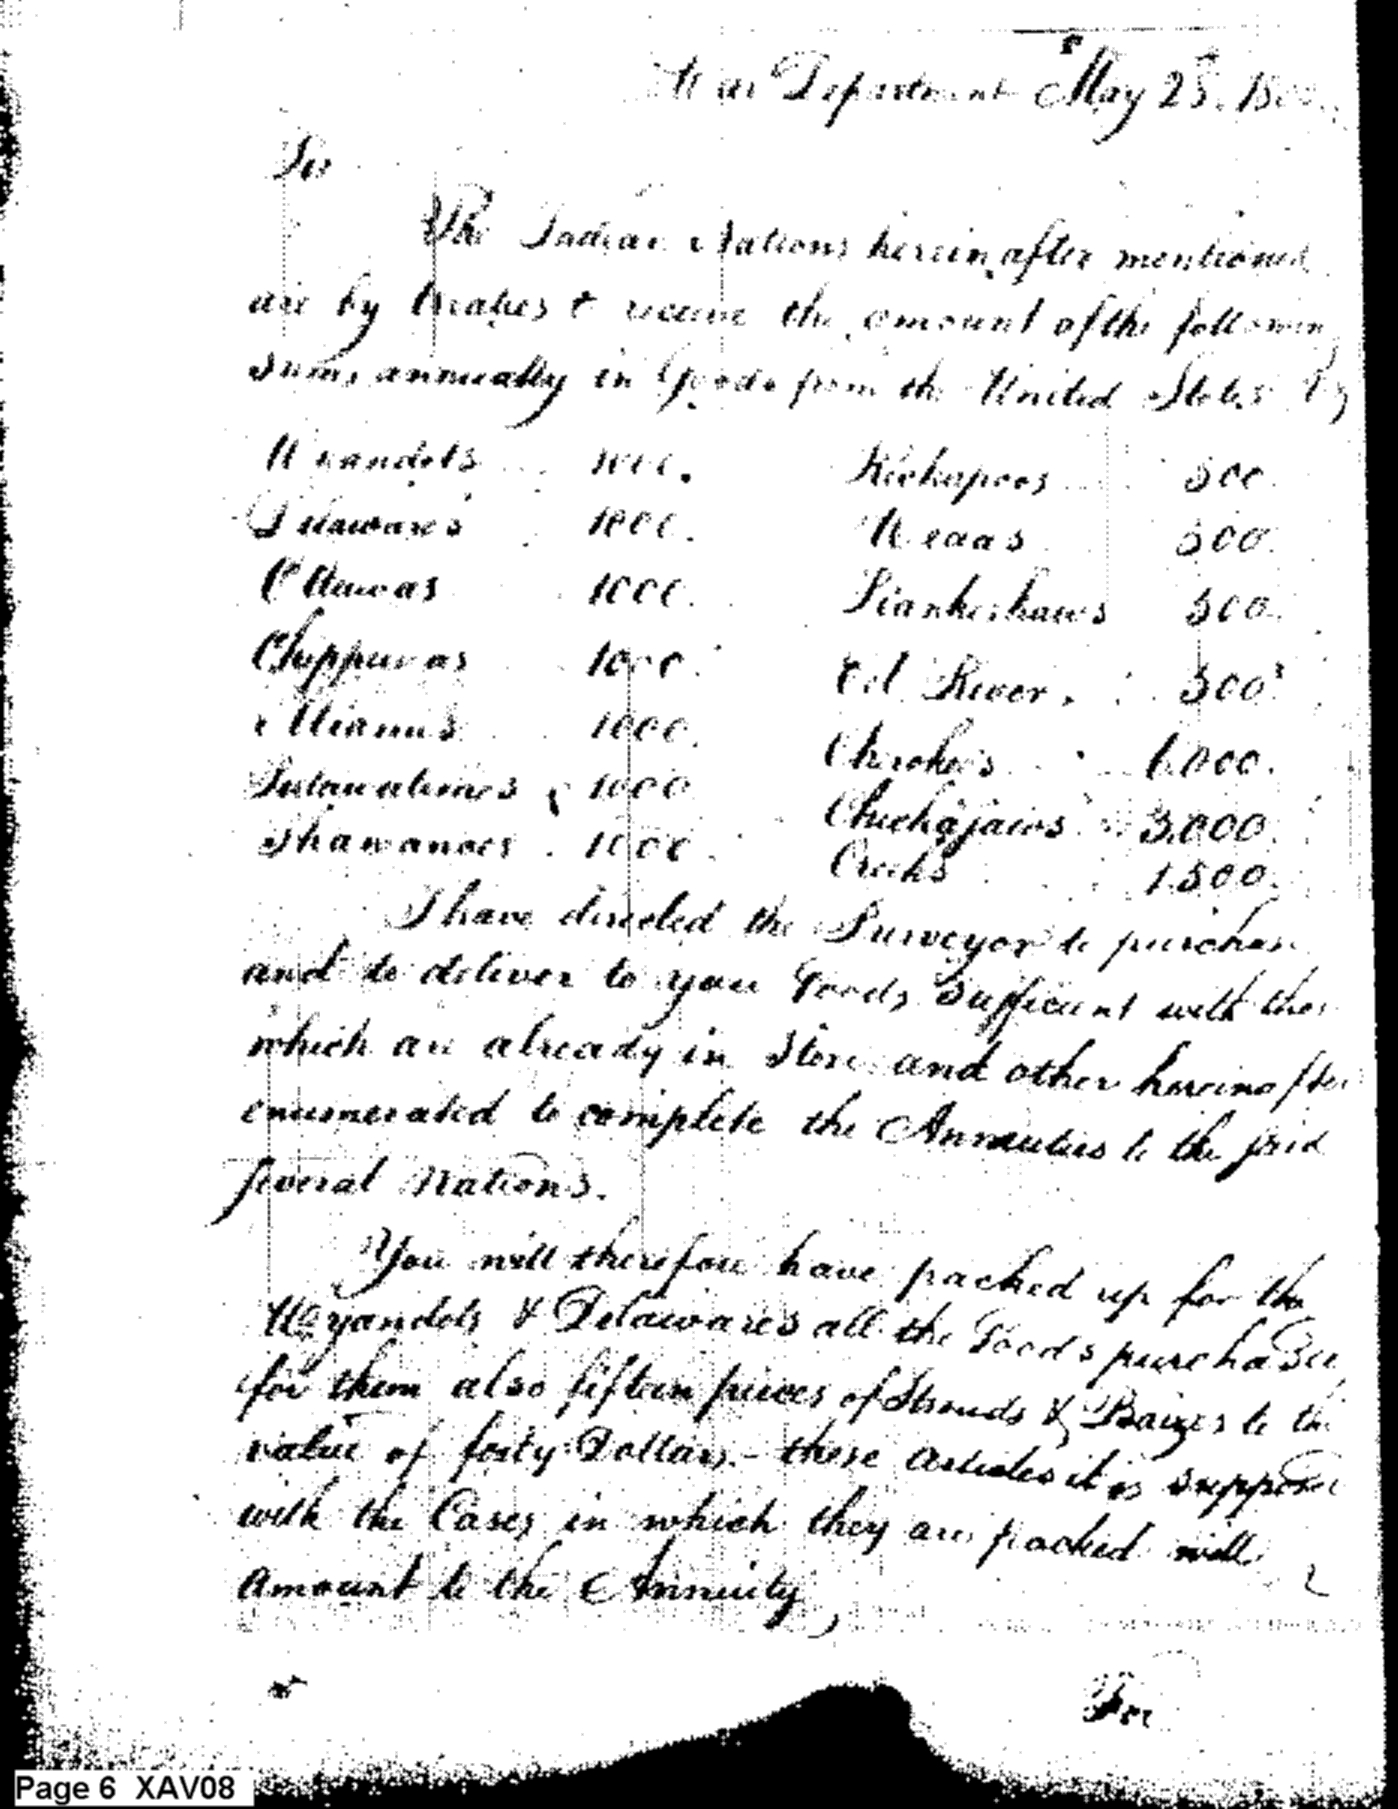 War Department May 25. 180
The Indian Nations herein after mentioned
are by treaties to receive the amount of the following
Sums annually in Goods from the United States Viz
Wyandots 1000. Kickapoos 500.
Delawares 1000. Weaas 500.
Ottawas 1000. Piankeshaws 500.
Chippewas 1000. Eel River 500
Miamis 1000. Cherokees 6.000.
Putawatimes 1000 Chickasaws 3.000
Shawanoes 1000. Creeks 1.500.
I have directed the Purveyor to purchase
and to deliver to you Goods Sufficient with those
which are already in Store and other hereinafter
enumerated to complete the Annuities to the said
several Nations.
You will therefore have packed up for the
Wyandots & Delawares all the Goods purchased
for them also fifteen pieces of Strouds & Baizes to the
value of forty Dollars - these articles it is supposed
with the Cases in which they are packed will
Amount to the Annuity,
For
Page 6 XAV08